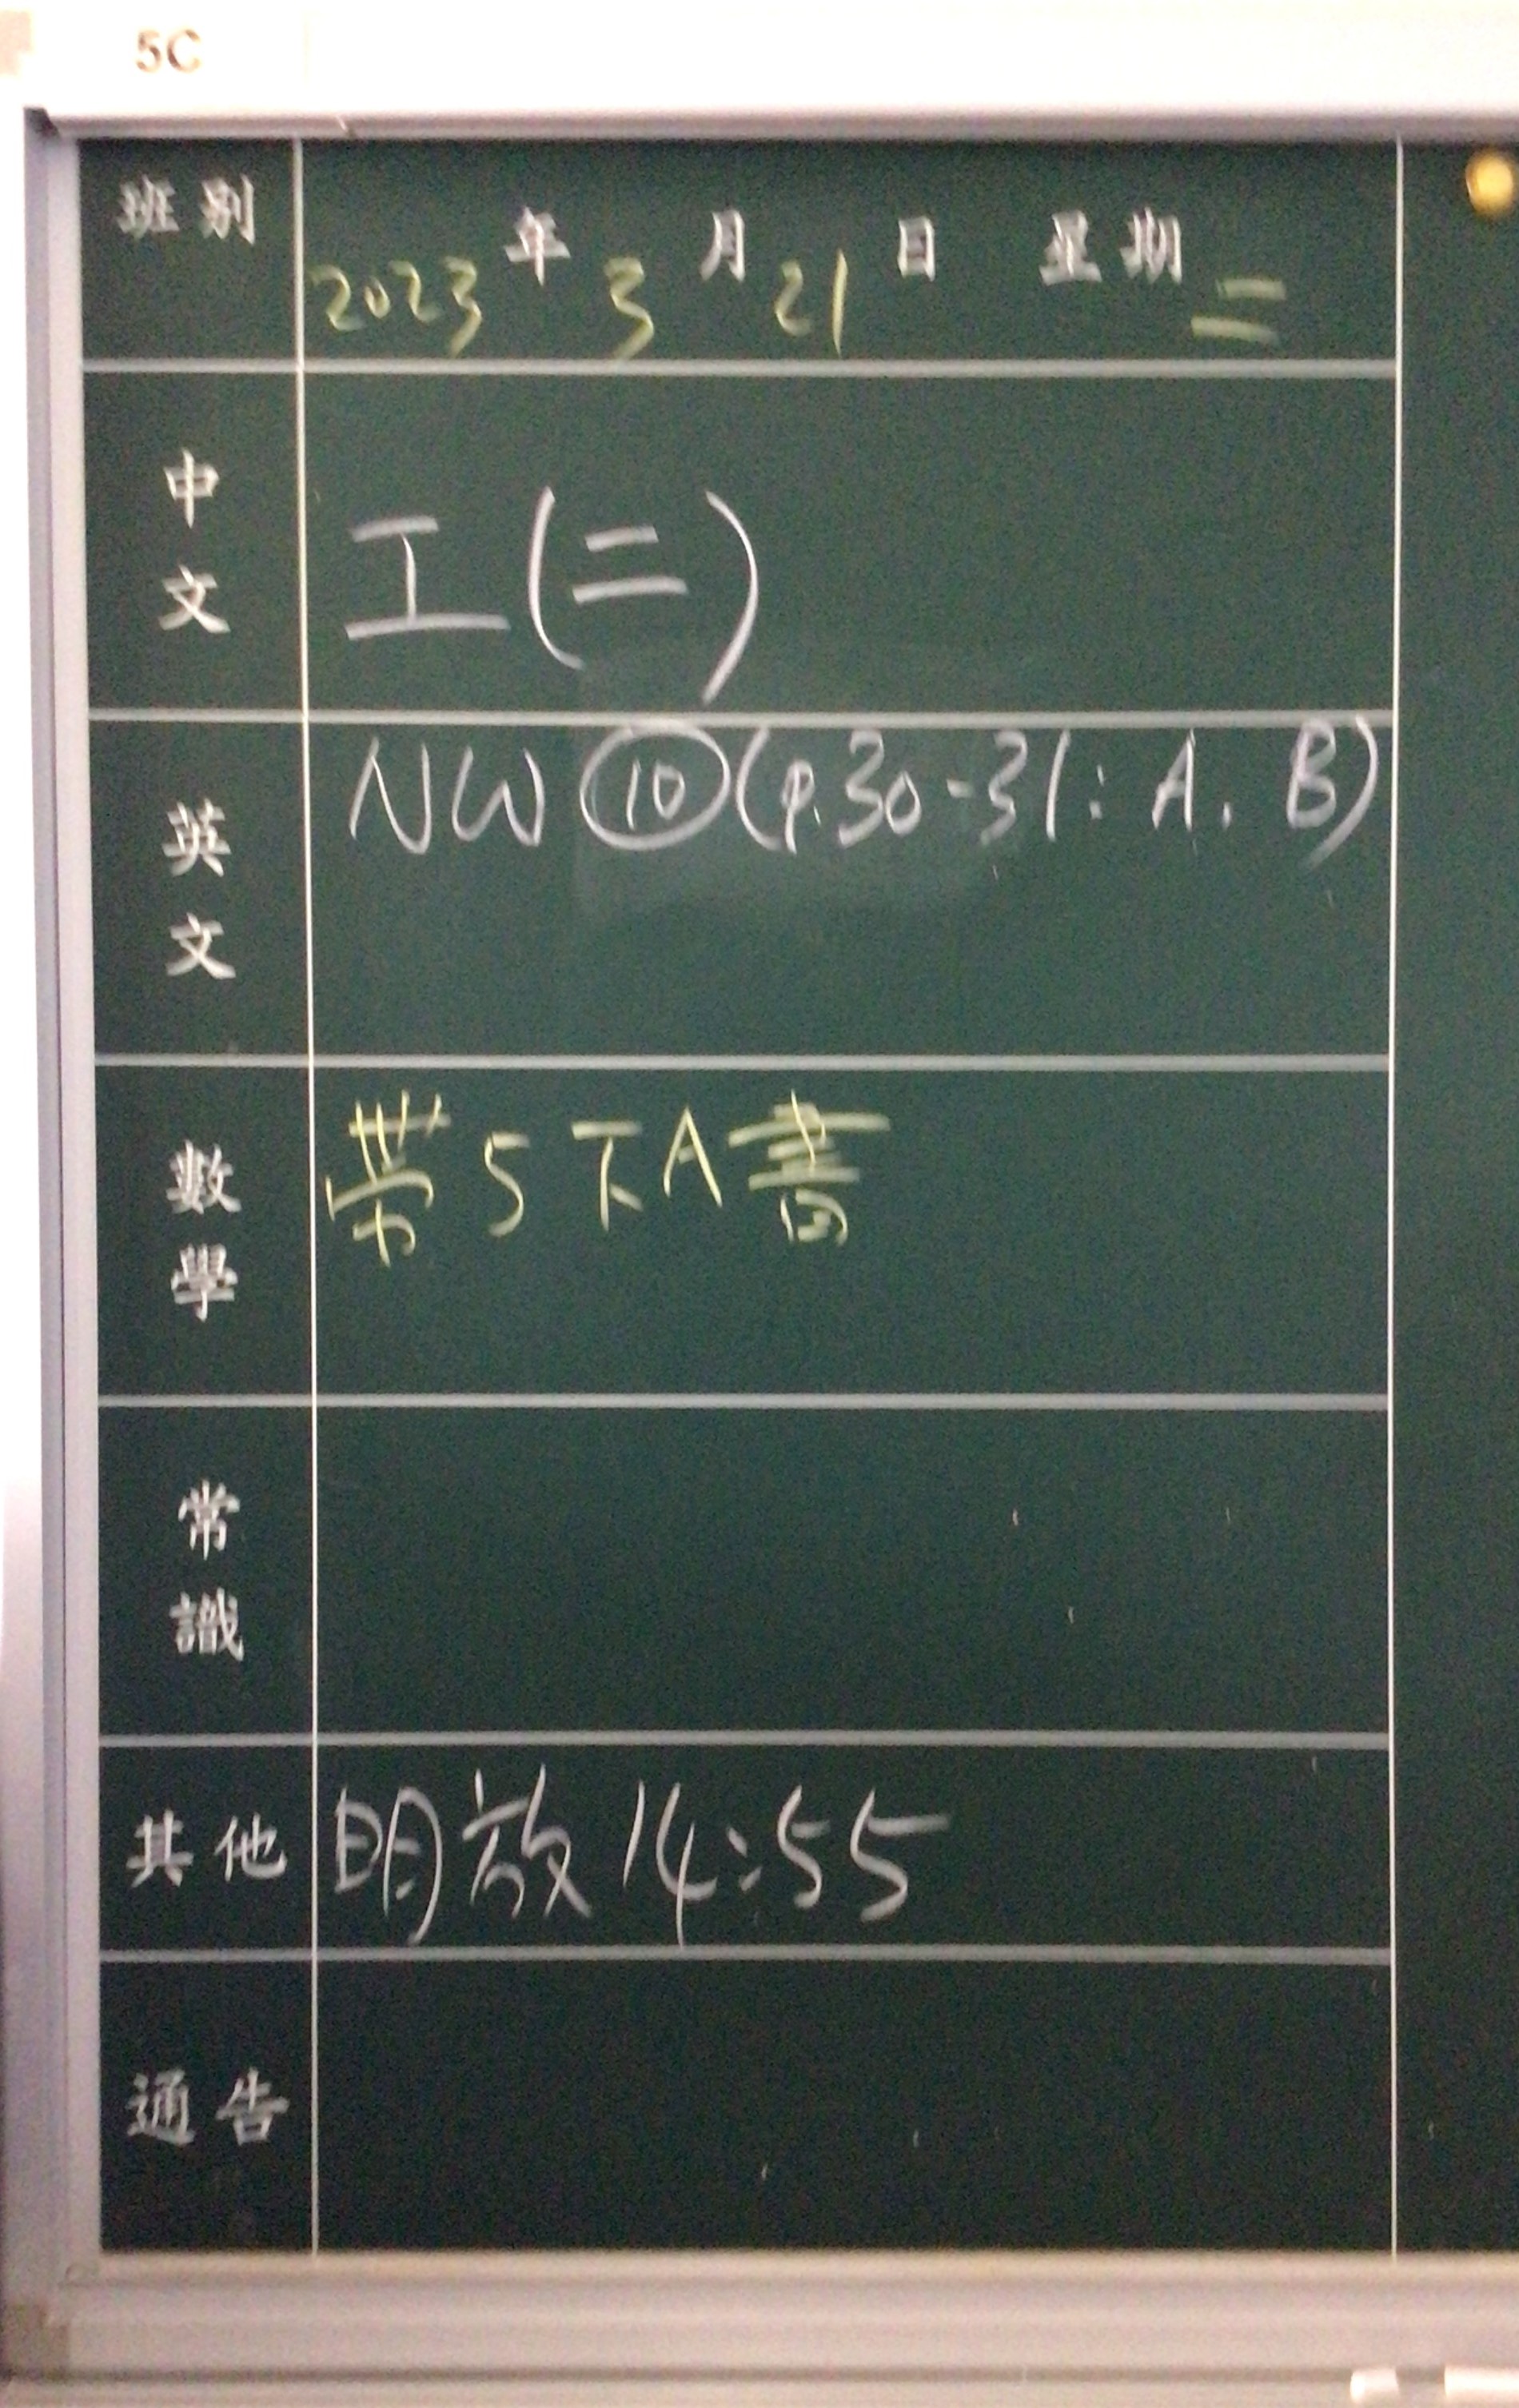 5C
班別
年 月 日 星期
2023 3 21 二
中文
工(二)
英文
NW ⑩ (p.30-31: A, B)
數學
帶5下A書
常識
其他
明放14:55
通告